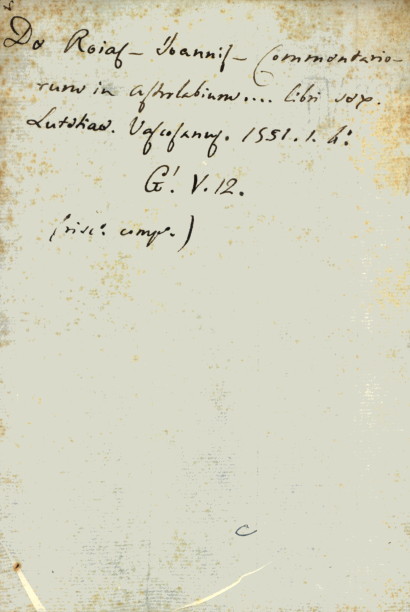 De Roias - Ioannis - Commentario-
rum in astrolabium.... libri sex.
Lutetiae. Vascosanus. 1551. 1. 4°.
G'. V. 12.
(risc°. comp°.)
c